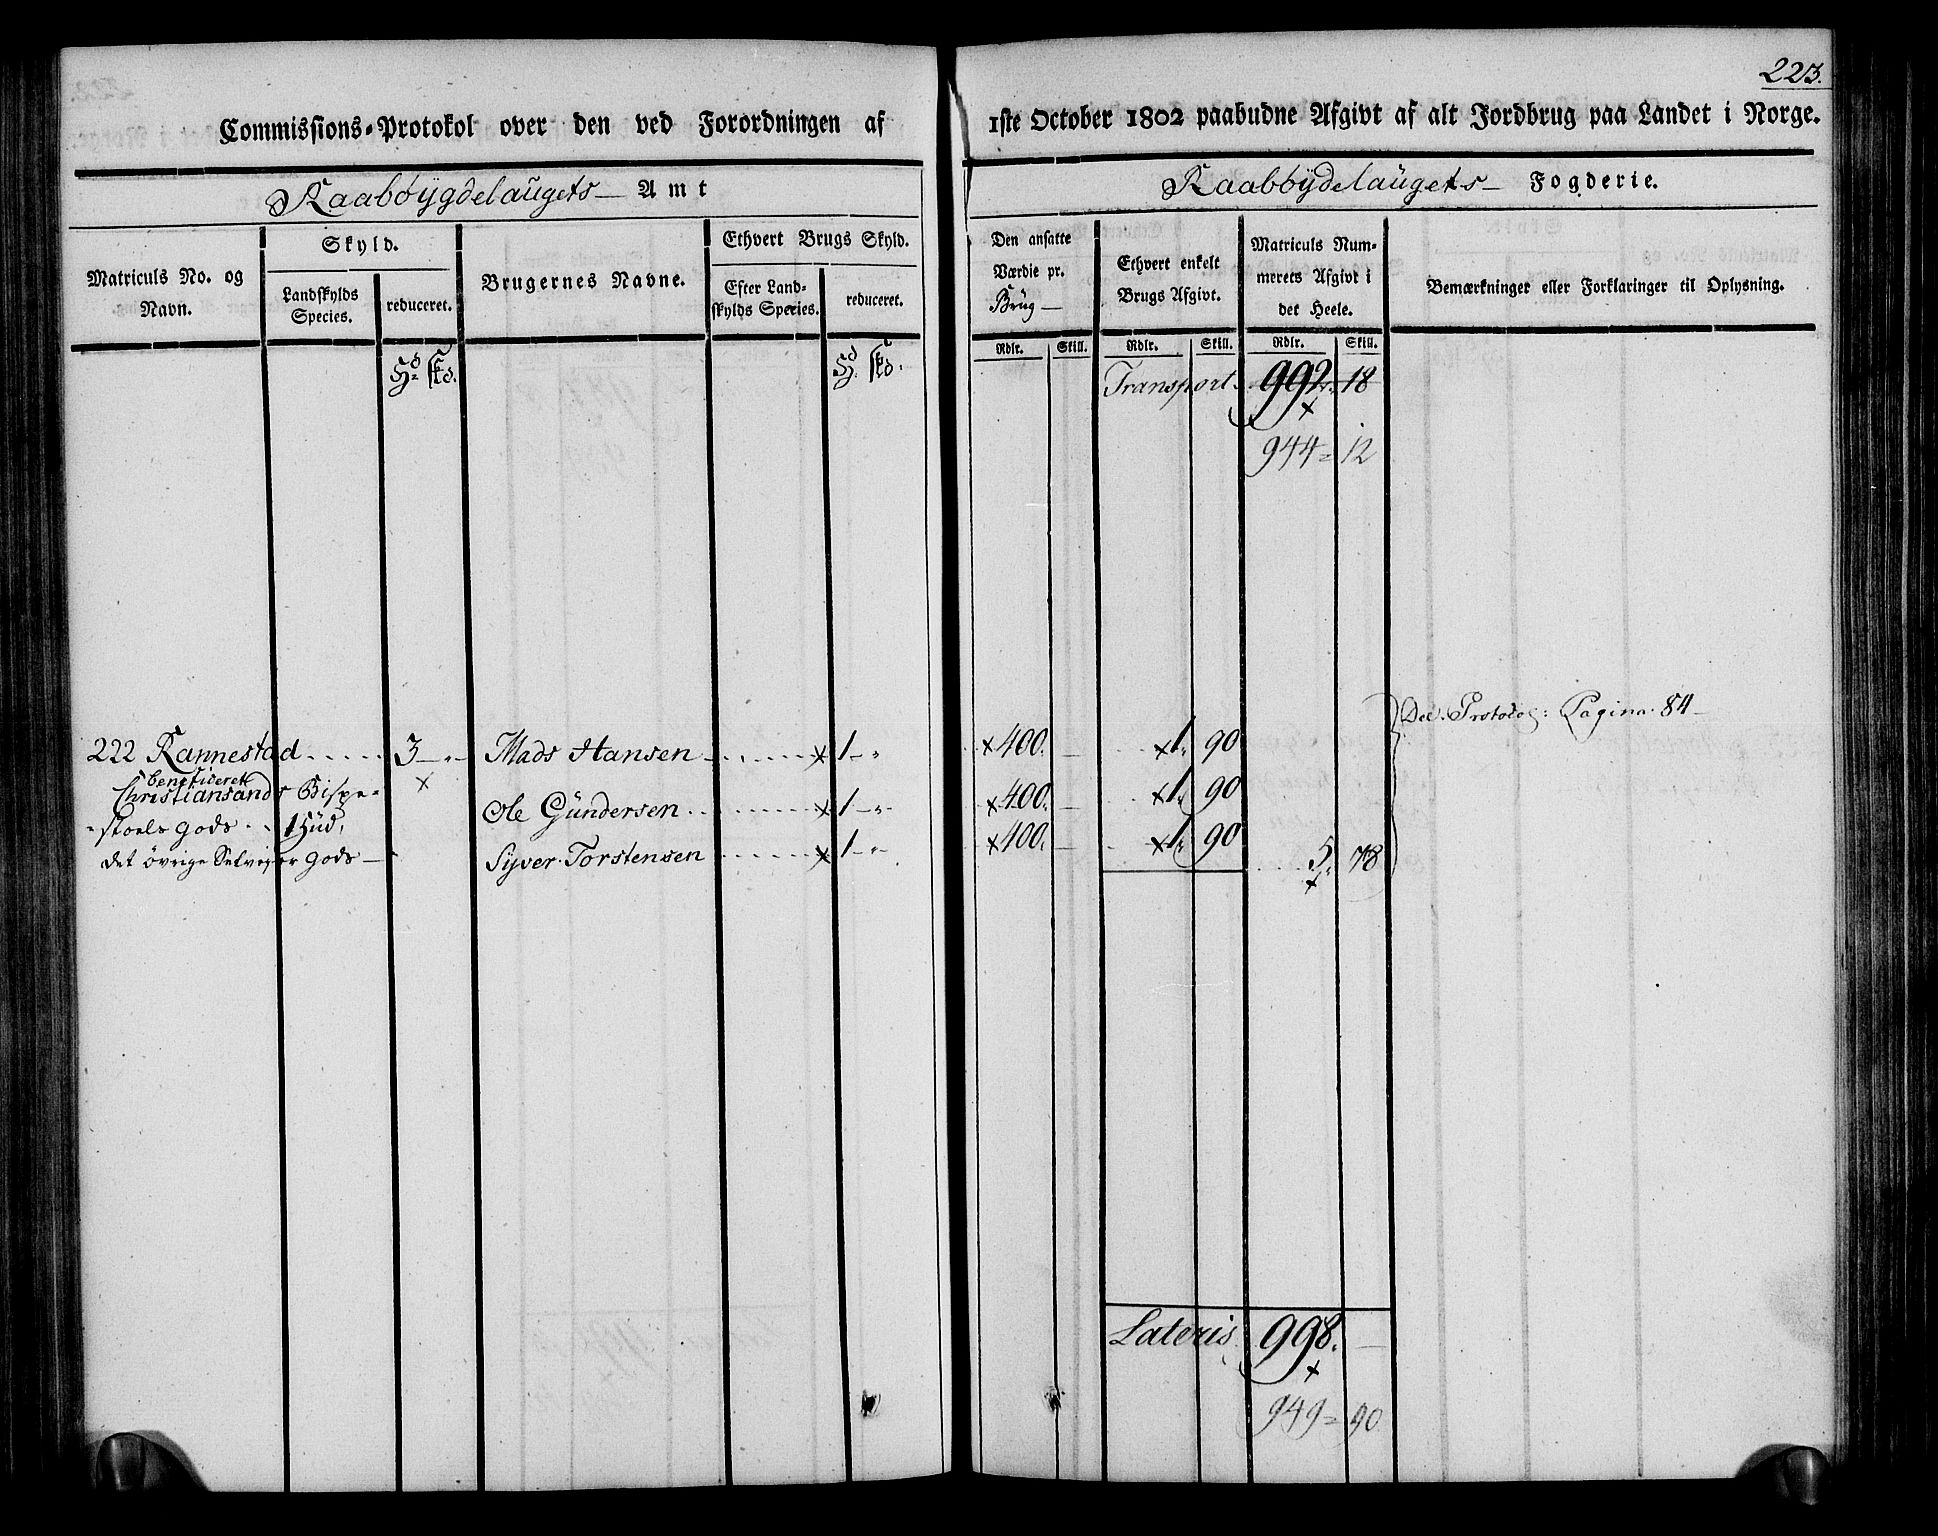 223.
Commissions-Protokol over den ved Forordningen af 1ste October 1802 paabudne Afgivt af alt Jordbrug paa Landet i Norge.
Raabøygdelaugets Amt
Raabøydelaugets Fogderie.
Matriculs No. og Navn.
Skyld.
Landskylds Species.
reduceret.
Brugernes Navne.
Ethvert Brugs Skyld.
Efter Landskylds Species.
reduceret.
Den ansatte Værdie pr. Brüg
Ethvert enkelt Brugs Afgivt.
Matriculs Nummerets Afgivt i det Heele.
Bemærkninger eller Forklaringer til Oplysning.
Rdlr. Skill. Rdlr. Skill. Rdlr. Skill.
Hd. skd. Hd. skd.
Transport 992. 18
944 = 12
Ded. Protocol: Pagina 84
222 Rannestad 3 - - Mads Hansen x 1 - " x 400. x 1. 90
beneficeret
Christiansands Bispe=
=stoels gods 1 Hüd, Ole Gündersen x 1 - " x 400. x 1. 90
det övrige Selveyer gods Syver Torstensen x 1 - " x 400. x 1. 90
5. 78
Lateris 998. —
949 = 90